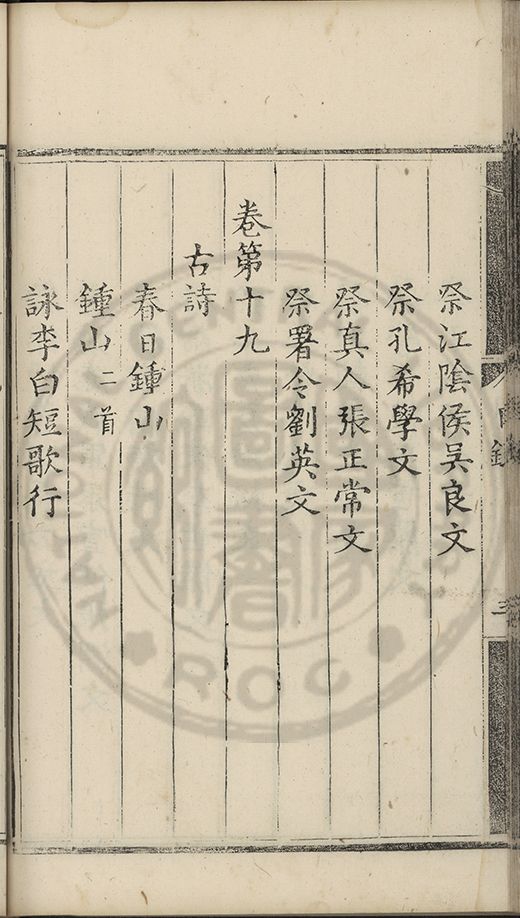 祭江陰侯吳良文
祭孔希學文
祭真人張正常文
祭署令劉英文
卷第十九
古詩
春日鍾山
鍾山二首
詠李白短歌行
目錄
三
ROC